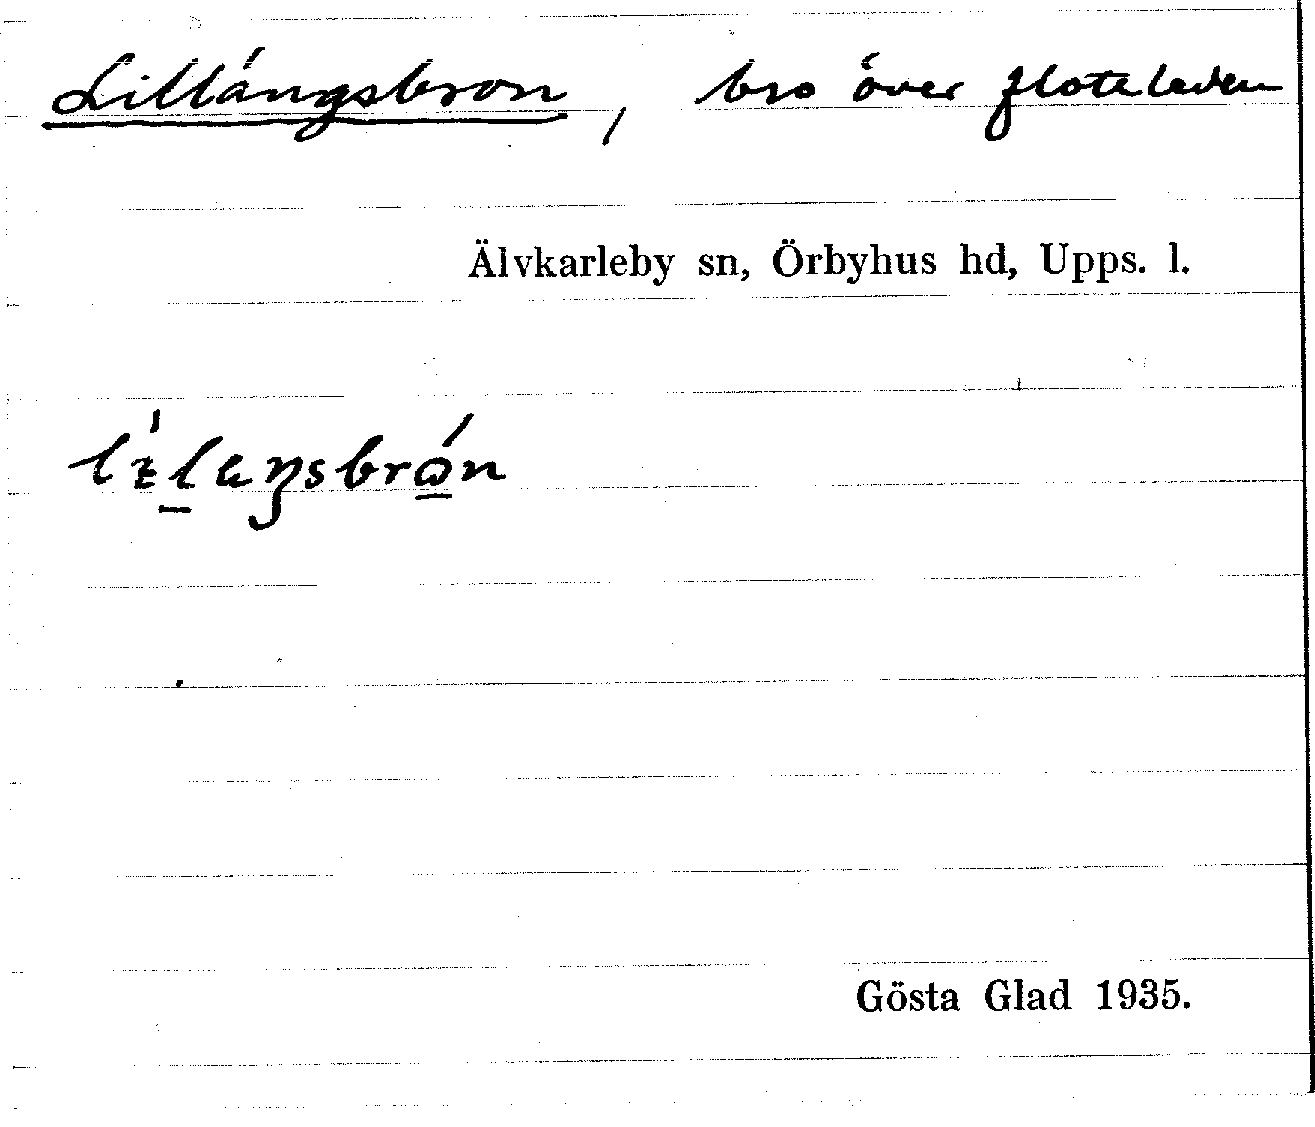 Lillängsbron, bro över floteleden
Älvkarleby sn, Örbyhus hd, Upps. l.
Gösta Glad 1935.